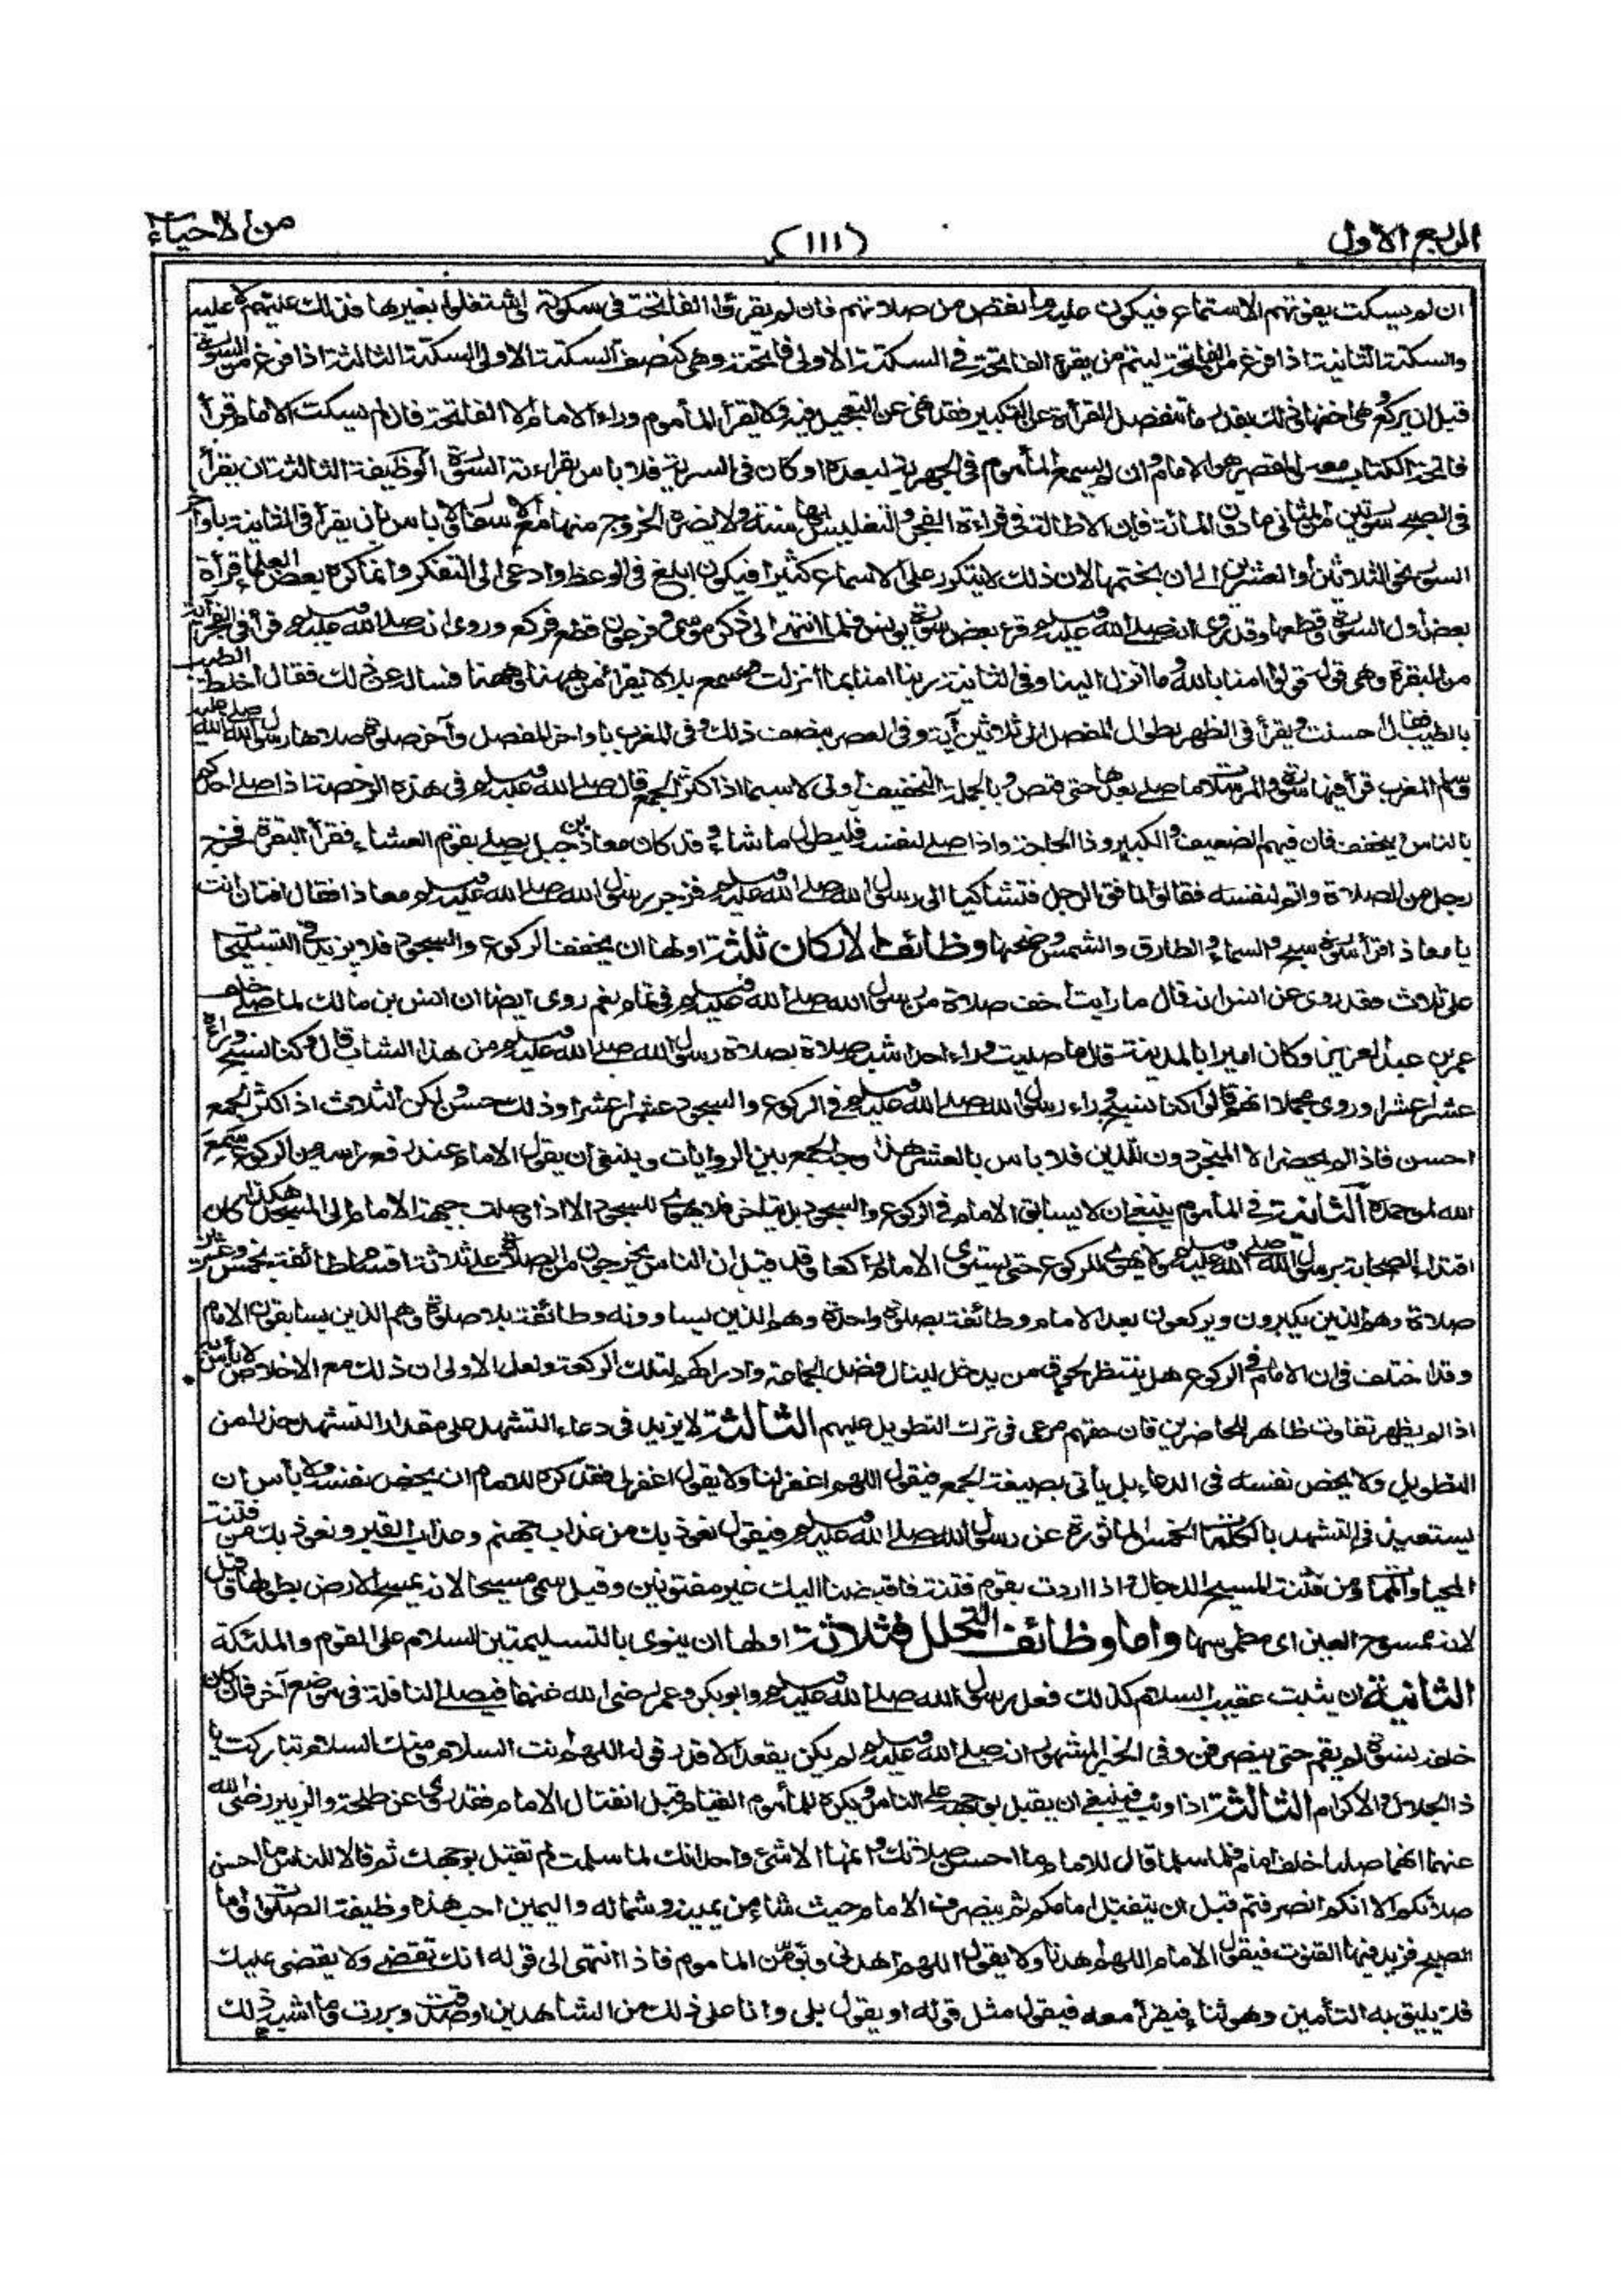 الربع الاول
(١١١)
من الاحياء
ان لم يسكت يفوتهم الاستماع فيكون عليه ما نقص من صلاتهم فان لم يقرؤا الفاتحة فى سكوته او اشتغلوا بغيرها فذلك عليهم لا عليه
والسكتة الثانية اذا فرغ من الفاتحة ليتم من يقرء الفاتحة فى السكتة الاولى فاتحته وهى كنصف السكتة الاولى السكتة الثالثة اذا فرغ من السورة
قبل ان يركع وهى اخفها وذلك بقدر ما تنفصل القرأة عن التكبير فقد نهى عن التعجيل فيه ولا يقرأ المأموم وراء الامام الا الفاتحة فان لم يسكت الامام قرأ
فاتحة الكتاب معه والمقصر هو الامام وان لم يسمع المأموم فى الجهرية لبعده او كان فى السرية فلا باس بقراءته السورة الوظيفة الثالثة ان يقرأ
فى الصبح سورتين من المثانى ما دون المائة فان الاطالة فى قراءة الفجر والتغليس بها سنة ولا يضره الخروج منها مع الاسفار ولا باس بان يقرأ فى الثانية باواخر
السور نحو الثلاثين او العشرين الى ان يختمها لان ذلك لا يتكرر على الاسماع كثيرا فيكون ابلغ فى الوعظ وادعى الى التفكر وانما كره بعض العلماء قرأة
بعض اول السورة وقطعها وقد روى انه صلى الله عليه وسلم قرء بعض سورة يونس فلما انتهى الى ذكر موسى وفرعون قطع فركع وروى انه صلى الله عليه وسلم قرأ فى الفجر آية
من البقرة وهى قوله قولوا امنا بالله وما انزل الينا وفى الثانية ربنا امنا بما انزلت وسمع بلالا يقرأ من ههنا وههنا فساله عن ذلك فقال اخلط الطيب
بالطيب فقال احسنت ويقرأ فى الظهر بطوال المفصل الى ثلاثين آية وفى العصر بنصف ذلك وفى المغرب باواخر المفصل وآخر صلوة صلاها رسول الله صلى الله عليه
وسلم المغرب قرأ فيها سورة والمرسلات ما صلى بعدها حتى قبض وبالجملة التخفيف اولى لا سيما اذا كثر الجمع قال صلى الله عليه وسلم فى هذه الرخصة اذا صلى احدكم
بالناس فليخفف فان فيهم الضعيف والكبير وذا الحاجة واذا صلى لنفسه فليطول ما شاء وقد كان معاذ بن جبل يصلى بقوم العشاء فقرأ البقرة فخرج
رجل من الصلاة واتم لنفسه فقالوا نافق الرجل فتشاكيا الى رسول الله صلى الله عليه وسلم فزجر رسول الله صلى الله عليه وسلم معاذا فقال افتان انت
يا معاذ اقرأ سورة سبح والسماء والطارق والشمس وضحها وظائف الاركان ثلثة اولها ان يخفف الركوع والسجود فلا يزيد فى التسبيحات
على ثلاث فقد روى عن انس انه قال ما رايت اخف صلاة من رسول الله صلى الله عليه وسلم فى تمام نعم روى ايضا ان انس بن مالك لما صلى خلف
عمر بن عبد العزيز وكان اميرا بالمدينة قال ما صليت وراء احد اشبه صلاة بصلاة رسول الله صلى الله عليه وسلم من هذا الشاب قال وكنا نسبح وراءه
عشرا عشرا وروى مجملا انهم قالوا كنا نسبح وراء رسول الله صلى الله عليه وسلم فى الركوع والسجود عشرا عشرا وذلك حسن ولكن الثلاث اذا كثر الجمع
احسن فاذا لم يحضر الا المتجردون للدين فلا باس بالعشر هذا وجه الجمع بين الروايات وينبغى ان يقول الامام عند رفع راسه من الركوع سمع
الله لمن حمده الثانية فى المأموم ينبغى ان لا يسابق الامام فى الركوع والسجود بل يتاخر فلا يهوى للسجود الا اذا وصلت جبهة الامام الى المسجد هكذا كان
اقتداء الصحابة برسول الله صلى الله عليه وسلم ولا يهوى للركوع حتى يستوى الامام راكعا وقد قيل ان الناس يخرجون من الصلاة على ثلاثة اقسام طائفة بخمس وعشرين
صلاة وهم الذين يكبرون ويركعون بعد الامام وطائفة بصلوة واحدة وهم الذين يساوونه وطائفة بلا صلوة وهم الذين يسابقون الامام
وقد اختلف فى ان الامام فى الركوع هل ينتظر لحوق من يدخل لينال فضل الجماعة وادراكهم لتلك الركعة ولعل الاولى ان ذلك مع الاخلاص لا بأس به
اذا لم يظهر تفاوت ظاهر للحاضرين فان حقهم مرعى فى ترك التطويل عليهم الثالثة لا يزيد فى دعاء التشهد على مقدار التشهد حذرا من
التطويل ولا يخص نفسه فى الدعاء بل يأتى بصيغة الجمع فيقول اللهم اغفر لنا ولا يقول اغفر لى فقد كره للامام ان يخص نفسه ولا بأس ان
يستعيذ فى التشهد بالكلمات الخمس الماثورة عن رسول الله صلى الله عليه وسلم فيقول نعوذ بك من عذاب جهنم وعذاب القبر ونعوذ بك من فتنة
المحيا والممات ومن فتنة المسيح الدجال واذا اردت بقوم فتنة فاقبضنا اليك غير مفتونين وقيل سمى مسيحا لانه يمسح الارض بطولها وقيل
لانه ممسوح العين اى مطموسها واما وظائف التحلل فثلاثة اولها ان ينوى بالتسليمتين السلام على القوم والملئكة
الثانية ان يثبت عقيب السلام كذلك فعل رسول الله صلى الله عليه وسلم وابو بكر وعمر رضى الله عنهما فيصلى النافلة فى موضع آخر فان كان
خلفه نسوة لم يقم حتى ينصرفن وفى الخبر المشهور انه صلى الله عليه وسلم لم يكن يقعد الا قدر قوله اللهم انت السلام ومنك السلام تباركت يا
ذا الجلال والاكرام الثالثة اذا وثب فينبغى ان يقبل بوجهه على الناس ويكره للمأموم القيام قبل انفتال الامام فقد روى عن طلحة والزبير رضى الله
عنهما انهما صليا خلف امام فلما سلما قالا للامام ما احسن صلاتك واتمها الا شئ واحد انك لما سلمت لم تفتل بوجهك ثم قالا للناس ما احسن
صلاتكم الا انكم انصرفتم قبل ان ينفتل امامكم ثم ينصرف الامام حيث شاء من يمينه وشماله واليمين احب هذه وظيفة الصلوات واما
الصبح فزيد فيها القنوت فيقول الامام اللهم اهدنا ولا يقول اللهم اهدنى ويؤمن المأموم فاذا انتهى الى قوله انك تقضى ولا يقضى عليك
فلا يليق به التأمين وهو ثناء فيقرأ معه فيقول مثل قوله او يقول بلى وانا على ذلك من الشاهدين او صدقت وبررت وما اشبه ذلك